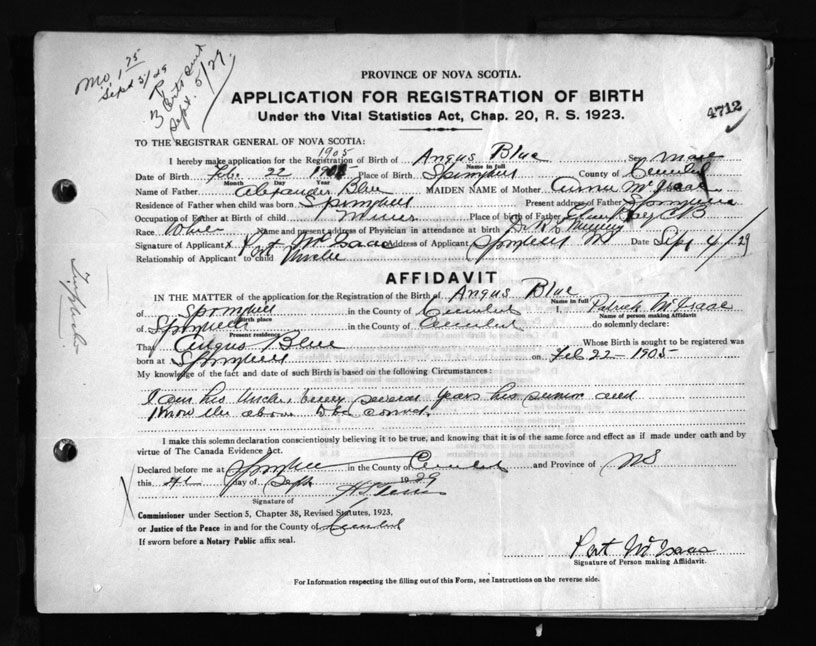 Mo 1.75
Sept 5/29
3 Certs sent
Sept. 5/29.
PROVINCE OF NOVA SCOTIA.
APPLICATION FOR REGISTRATION OF BIRTH
Under the Vital Statistics Act, Chap. 20, R. S. 1923.
4712
TO THE REGISTRAR GENERAL OF NOVA SCOTIA:
1905
I hereby make application for the Registration of Birth of Angus Blue Sex Male
Name in full
Date of Birth Feb. 22 Place of Birth County of
Month Day Year
Name of Father Alexander Blue MAIDEN NAME of Mother McIsaac
Residence of Father when child was born Present address of Father
Occupation of Father at Birth of child Miner Place of birth of Father Glace Bay CB
Race White Name and present address of Physician in attendance at birth Dr
Signature of Applicant x Pat McIsaac Address of Applicant Date Sept 4/29
Relationship of Applicant to child Uncle
AFFIDAVIT
IN THE MATTER of the application for the Registration of the Birth of Angus Blue
Name in full
of in the County of I, Patrick McIsaac
Birth place Name of person making Affidavit
of in the County of do solemnly declare:
Present residence
That Angus Blue Whose Birth is sought to be registered was
born at on Feb 22 - 1905
My knowledge of the fact and date of such Birth is based on the following Circumstances:
I am his Uncle, being several years his senior and
know the above to be correct.
I make this solemn declaration conscientiously believing it to be true, and knowing that it is of the same force and effect as if made under oath and by
virtue of The Canada Evidence Act.
Declared before me at in the County of and Province of NS
this 4th day of Sept 1929
Signature of
Commissioner under Section 5, Chapter 38, Revised Statutes, 1923,
or Justice of the Peace in and for the County of
If sworn before a Notary Public affix seal.
Pat McIsaac
Signature of Person making Affidavit.
For Information respecting the filling out of this Form, see Instructions on the reverse side.